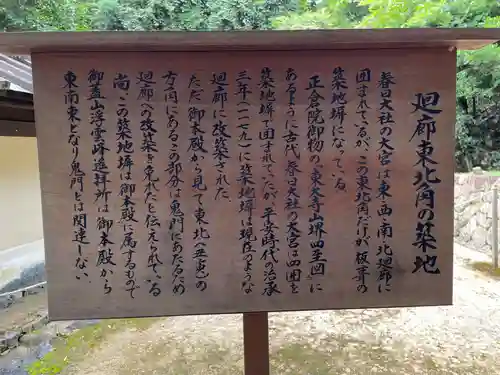 廻廊東北角の築地
春日大社の大宮は東・西・南・北廻廊に
囲まれているが、この東北角だけが板葺の
築地塀になっている。
正倉院御物の「東大寺山堺四至図」に
あるように古代春日大社の大宮は四囲を
築地塀で囲まれてたが、平安時代の治承
三年(一一七九)に築地塀は現在のような
廻廊に改築された。
ただ御本殿から見て東北(丑寅)の
方向にあるこの部分は鬼門にあたるため
廻廊への改築を免れたと伝えている。
尚、この築地塀は御本殿に属するもので
御蓋山浮雲峰遙拝所は御本殿から
東南東となり鬼門とは関連しない。